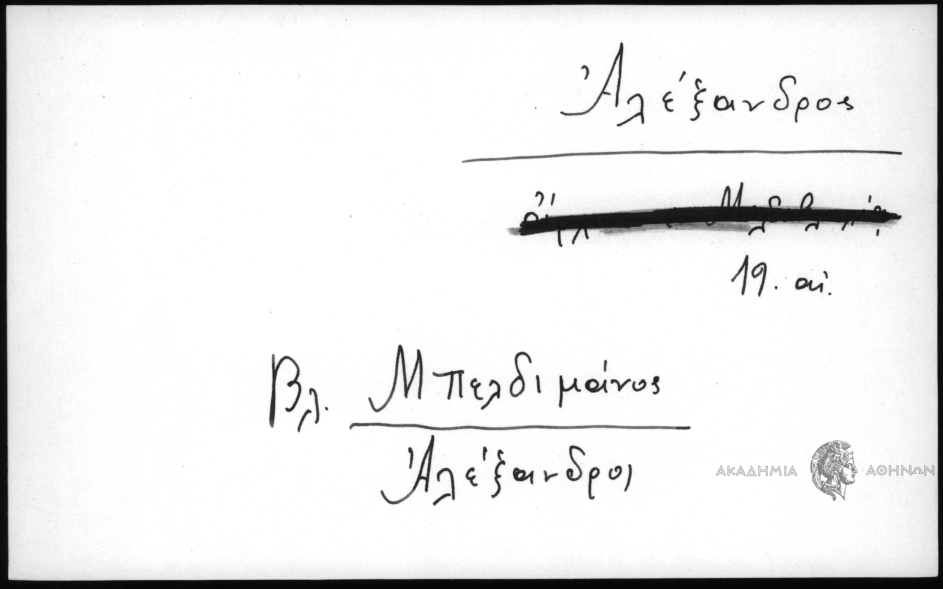 Ἀλέξανδρος
19. αἰ.
Βλ. Μπελδιμάνος
Ἀλέξανδρος
ΑΚΑΔΗΜΙΑ ΑΘΗΝΩΝ